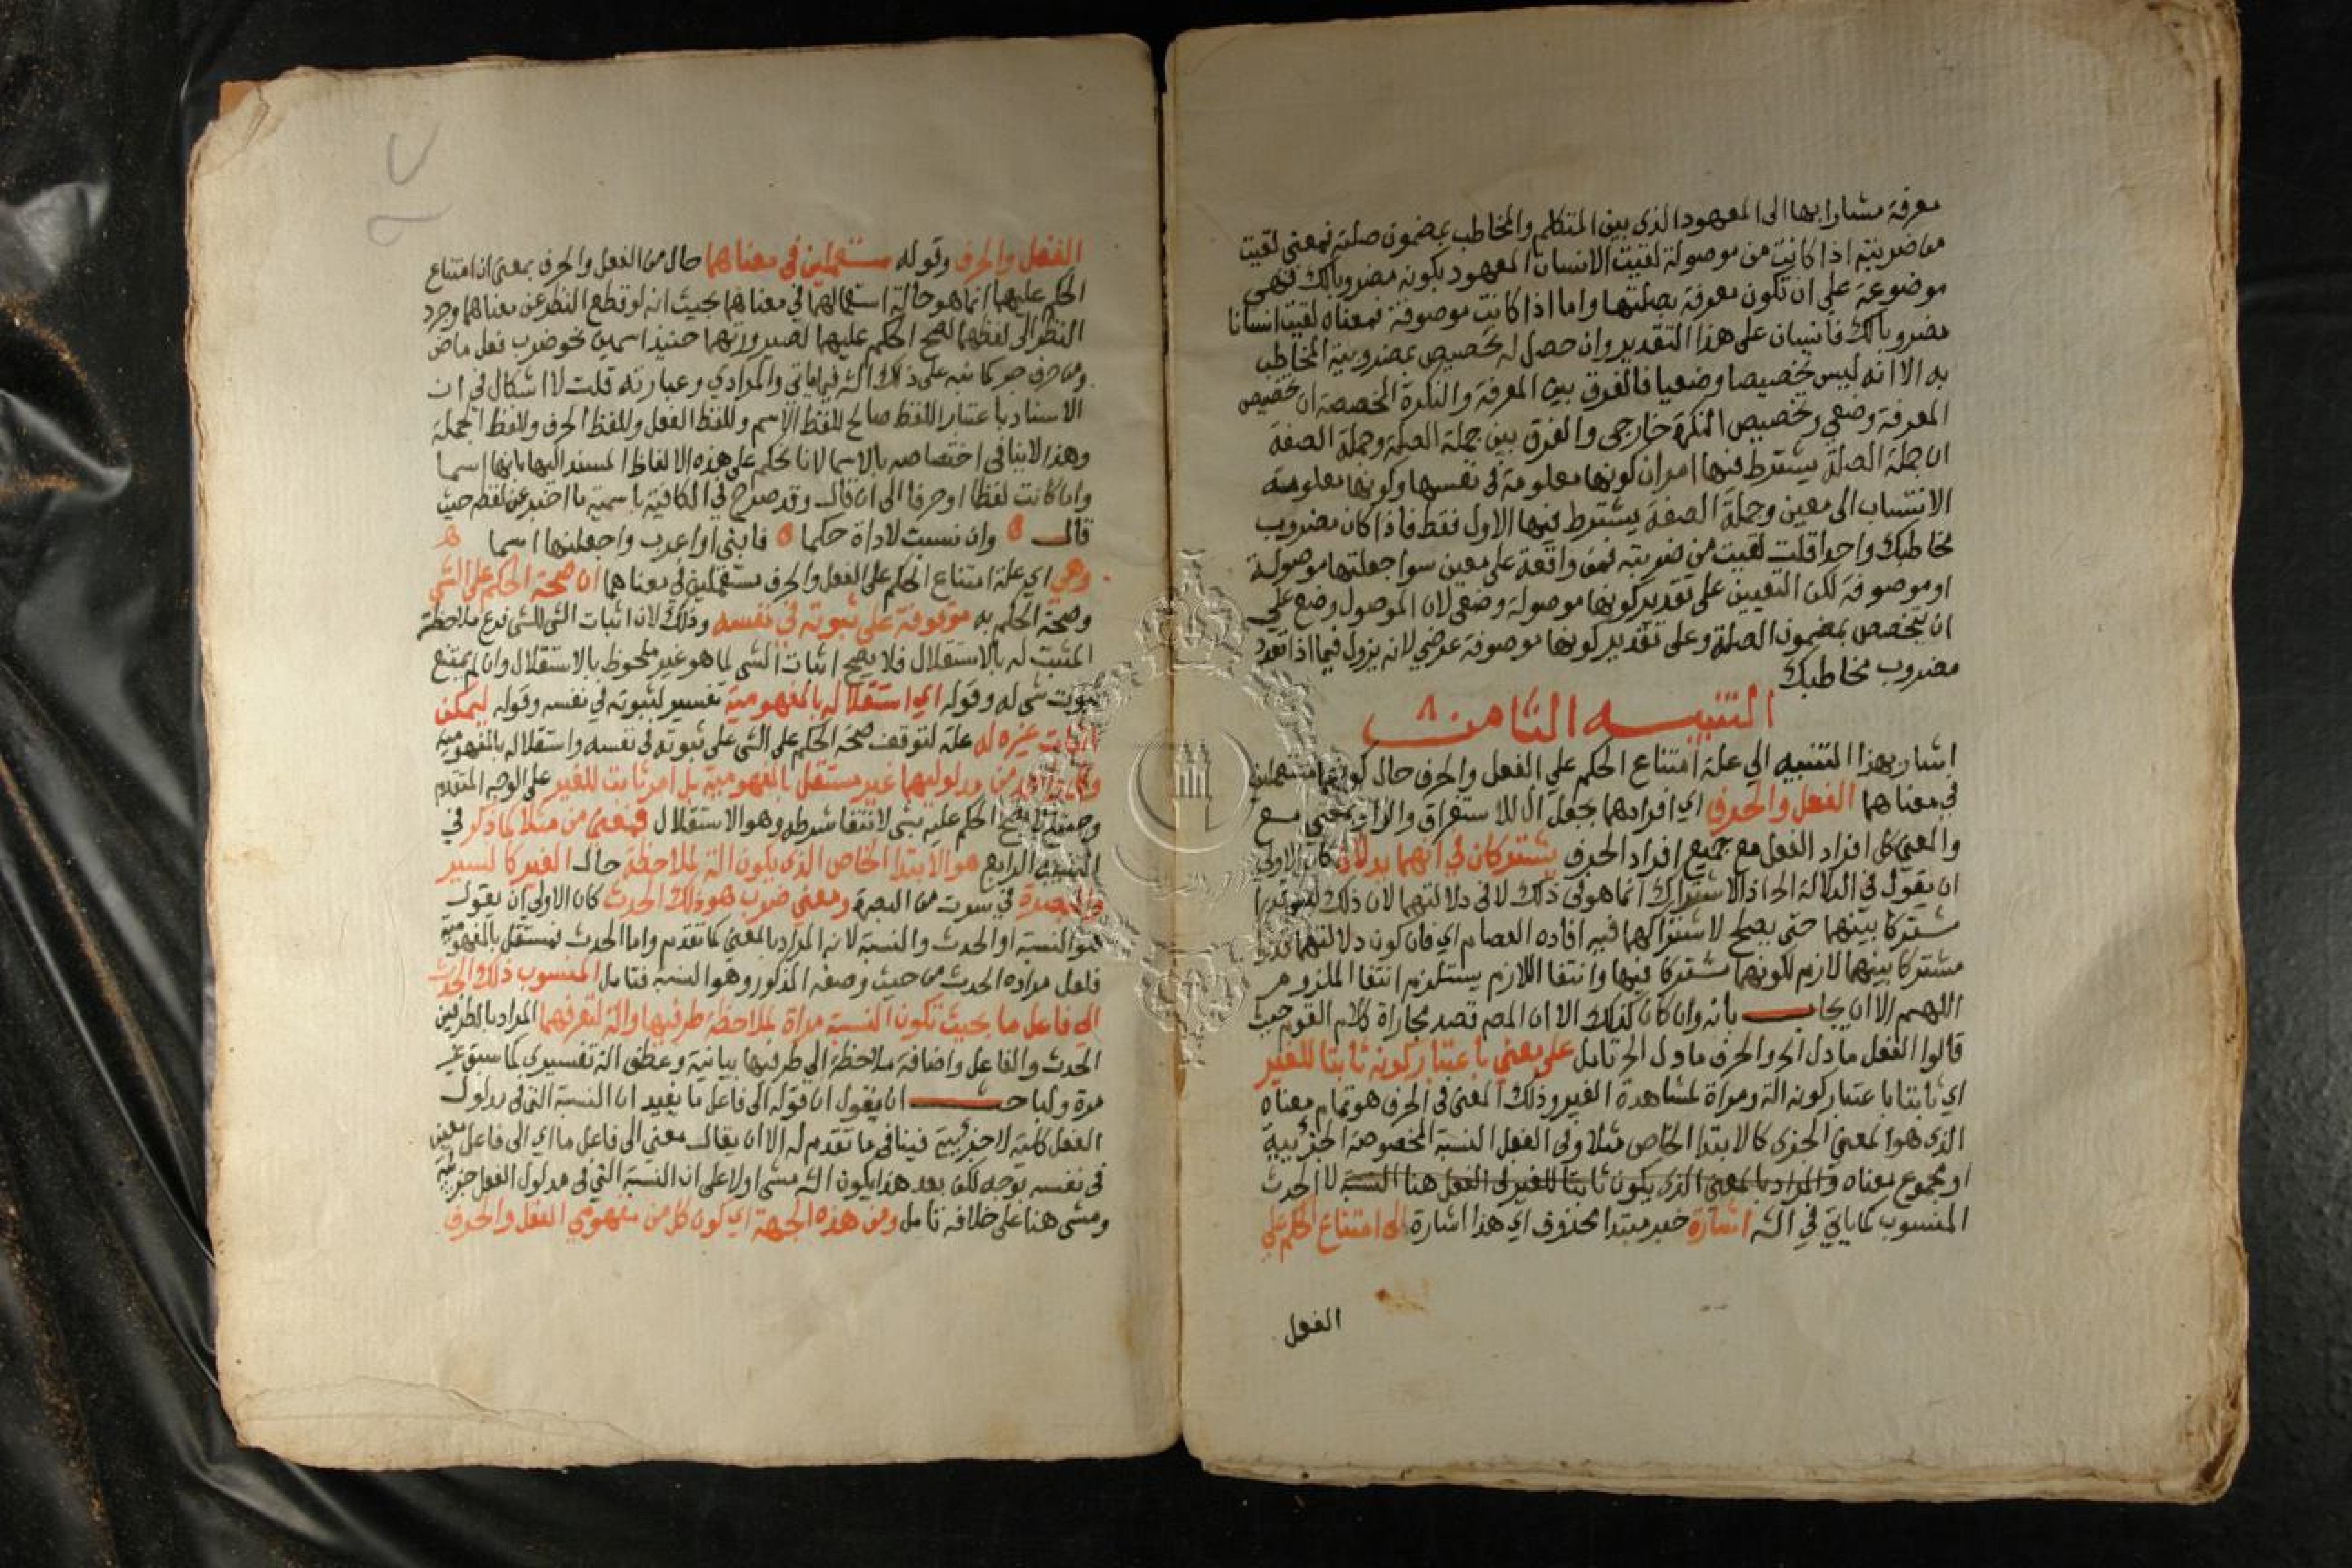 معرفة مشارا بها الى المعهود الذى بين المتكلم والمخاطب بمضمون صلته فمعنى لقيت
من ضربته اذا كانت من موصولة لقيت الانسان المعهود بكونه مضروبا لك فهي
موضوعة على ان تكون معرفة بصلتها واما اذا كانت موصوفة فمعناه لقيت انسانا
مضروبا لك فانسان على هذا التقدير وان حصل له تخصيص بمضروبية المخاطب
به الا انه ليس تخصيصا وضعيا فالفرق بين المعرفة والنكرة المخصصة ان تخصيص
المعرفة وضعي وتخصيص النكرة خارجي والفرق بين جملة الصلة وجملة الصفة
ان جملة الصلة يشترط فيها امران كونها معلومة في نفسها وكونها معلومة
الانتساب الى معين وجملة الصفة يشترط فيها الاول فقط فاذا كان مضروب
مخاطبك واحدا قلت لقيت من ضربته فمن واقعة على معين سوا جعلتها موصولة
او موصوفة لكن التعيين على تقدير كونها موصولة وضعي لان الموصول وضع على
ان يتخصص بمضمون الصلة وعلى تقدير كونها موصوفة عرضي لانه يزول فيما اذا تعدد
مضروب مخاطبك
التنبيه الثامن ٨
اشار بهذا التنبيه الي علة امتناع الحكم علي الفعل والحرف حال كونهما مستعملين
في معناهما الفعل والحرف اي افرادهما بجعل ال للاستغراق والواو بمعني مع
والمعنى كل افراد الفعل مع جميع افراد الحرف يشتركان في انهما يدلان كان الاولى
ان يقول في الدلالة الخ اذ الاشتراك انما هو في ذلك لا في دلالتهما لان ذلك ليس قدرا
مشتركا بينهما حتى يصح لاشتراكهما فيه افاده العصام اي فان كون دلالتهما قدرا
مشتركا بينهما لازم لكونهما مشتركا فيها وانتفا اللازم يستلزم انتفا الملزوم
اللهم الا ان يجاب بانه وان كان كذلك الا ان المص قصد مجاراة كلام القوم حيث
قالوا الفعل ما دل الخ والحرف ما دل الخ تامل على معني باعتبار كونه ثابتا للغير
اي ثابتا باعتبار كونه الة ومراة لمشاهدة الغير وذلك المعنى في الحرف هو تمام معناه
الذي هو المعني الجزى كالابتدا الخاص مثلا وفي الفعل النسبة المخصوصة الجزئيية
او مجموع معناه والمراد بالمعنى الذى يكون ثابتا للغير في الفعل هنا النسبة لا الحدث
المنسوب كما ياتي في الشـ اشارة خبر مبتدا محذوف اي هذا اشارة الى امتناع الحكم علي
الفعل
الفعل والحرف وقوله مستعملين في معناهما حال من الفعل والحرف بمعنى ان امتناع
الحكم عليهما انما هو حالة استعمالهما في معناهما بحيث انه لو قطع النظر عن معناهما وجرد
النظر الى لفظهما لصح الحكم عليهما لصيرورتهما حينئذ اسمين نحو ضرب فعل ماض
ومن حرف جر كما نبه على ذلك الشـ فيما ياتي والمرادي وعبارته قلت لا اشكال في ان
الاسناد باعتبار اللفظ صالح للفظ الاسم وللفظ الفعل وللفظ الحرف وللفظ الجملة
وهذا لا ينافي اختصاصه بالاسما لانا نحكم على هذه الالفاظ المسند اليها بانها اسما
وان كانت لفظا او حرفا الى ان قال وقد صرح في الكافية باسمية ما اخبر عن لفظه حيث
قال وان نسبت لاداة حكما فابني او اعرب واجعلنها اسما
وهي اي علة امتناع الحكم على الفعل والحرف مستعملين في معناهما ان صحة الحكم على الشي
وصحة الحكم به موقوفة على ثبوته في نفسه وذلك لان اثبات الشي للشي فرع ملاحظة
المثبت له بالاستقلال فلا يصح اثبات الشي لما هو غير ملحوظ بالاستقلال وان لم يمتنع
ثبوت شي له وقوله اي استقلاله بالمفهومية تفسير لثبوته في نفسه وقوله ليمكن
اثبات غيره له علة لتوقف صحة الحكم على الشي على ثبوته في نفسه واستقلاله بالمفهومية
من مدلوليهما غير مستقل بالمفهومية بل امر ثابت للغير على الوجه المتقدم
الحكم عليه بشي لانتفا شرطه وهو الاستقلال فمعني من مثلا كما ذكر في
التنبيه الرابع هو الابتدا الخاص الذى يكون الة لملاحظة حال الغير كالسير
والبصرة في سرت من البصرة ومعني ضرب هو ذلك الحدث كان الاولى ان يقول
هو النسبة او الحدث والنسبة لانه المراد بالمعنى كما تقدم واما الحدث فمستقل بالمفهومية
فلعل مراده الحدث من حيث وصفه المذكور وهو النسبة فتامل المنسوب ذلك الحدث
الى فاعل ما بحيث تكون النسبة مراة لملاحظة طرفيها والة لتعرفهما المراد بالطرفين
الحدث والفاعل واضافة ملاحظة الي طرفيها بيانية وعطف الة تفسيري كما سبق غير
مرة ولباحث ان يقول ان قوله الى فاعل ما يفيد ان النسبة التى في مدلول
الفعل كلية لا جزئيية فينافي ما تقدم له الا ان يقال معني الى فاعل ما اي الى فاعل معين
في نفسه بوجه لكن بعد هذا يكون الشـ مشى اولا على ان النسبة التي في مدلول الفعل جزئية
ومشى هنا على خلافه تامل ومن هذه الجهة اي كون كل من مفهومي الفعل والحرف